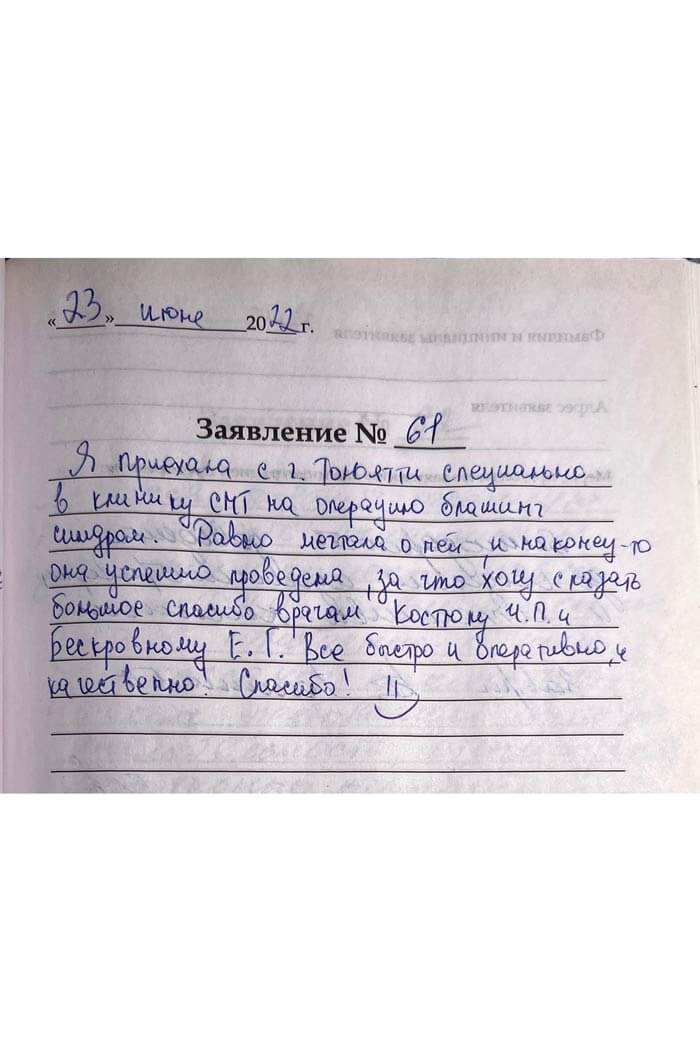 «23» июне 2022 г.
Заявление № 61
Я приехала с г. Тольятти специально
в клинику СМТ на операцию блашинг
синдром. Равно мечтала о ней, и наконец-то
она успешно проведена, за что хочу сказать
большое спасибо врачам Костюку И.П. и
Бескровному Е. Г. Все быстро и оперативно, и
качественно! Спасибо!